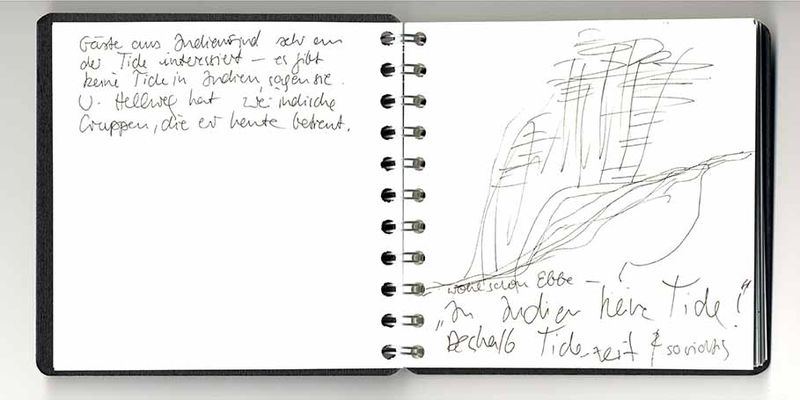 Gäste aus Indien sind sehr an
der Tide interessiert – es gibt
keine Tide in Indien, sagen sie.
U. Hellweg hat zwei indische
Gruppen, die er heute betreut.
wohl schon Ebbe –
„In Indien keine Tide!"
Deshalb Tidezeit so wichtig